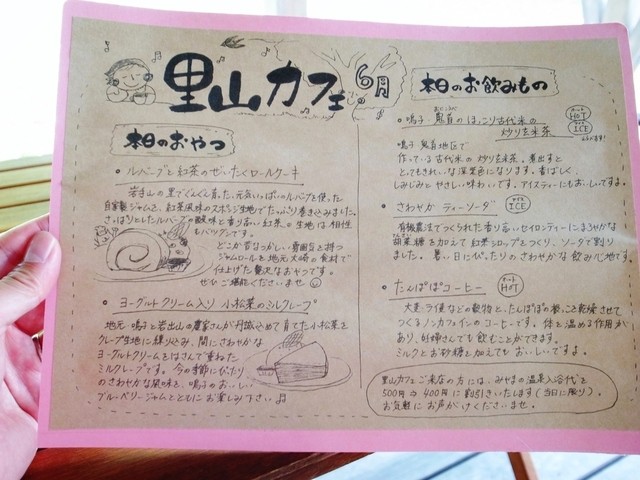 里山カフェ 6月
本日のおやつ
・ルバーブと紅茶のぜいたくロールケーキ
岩出山の里でぐんぐん育った、元気いっぱいのルバーブを使った
自家製ジャムを、紅茶風味のスポンジ生地でたっぷり巻き込みました。
さっぱりとしたルバーブの酸味と香り高い紅茶の生地は相性
もバツグンです。
どこか昔なつかしい雰囲気を持つ
ジャムロールを地元大崎の食材で
仕上げた贅沢なおやつです。
ぜひご堪能くださいませ
・ヨーグルトクリーム入り 小松菜のミルクレープ
地元・鳴子と岩出山の農家さんが丹誠込めて育てた小松菜を
クレープ生地に練り込み、間にさわやかな
ヨーグルトクリームをはさんで重ねた
ミルクレープです。今の季節にぴったり
のさわやかな風味を、鳴子のおいしい
ブルーベリージャムとともにお楽しみ下さい♫
本日のお飲みもの
・鳴子 鬼首のほっこり古代米の
炒り玄米茶
ホット HOT
アイス ICE
鳴子 鬼首地区で
作っている古代米の炒り玄米茶。煮出すと
とってもきれいな深紫色になります。香ばしく、
しみじみとやさしい味わいです。アイスティーにもおいしいですよ。
・さわやか ティーソーダ
アイス ICE
有機農法でつくられた香り高いセイロンティーにまろやかな
甜菜糖を加えて紅茶シロップをつくり、ソーダで割り
ました。暑い日にぴったりのさわやかな飲み心地です。
・たんぽぽコーヒー
ホット HOT
大麦・ライ麦などの穀物と、たんぽぽの根っこを乾燥させて
つくるノンカフェインのコーヒーです。体を温める作用が
あり、妊婦さんでも飲むことができます。
ミルクとお砂糖を加えてもおいしいですよ。
里山カフェご来店の方には、みやまの温泉入浴代を
500円→400円に割引きいたします(当日に限り)。
お気軽にお声がけくださいませ。